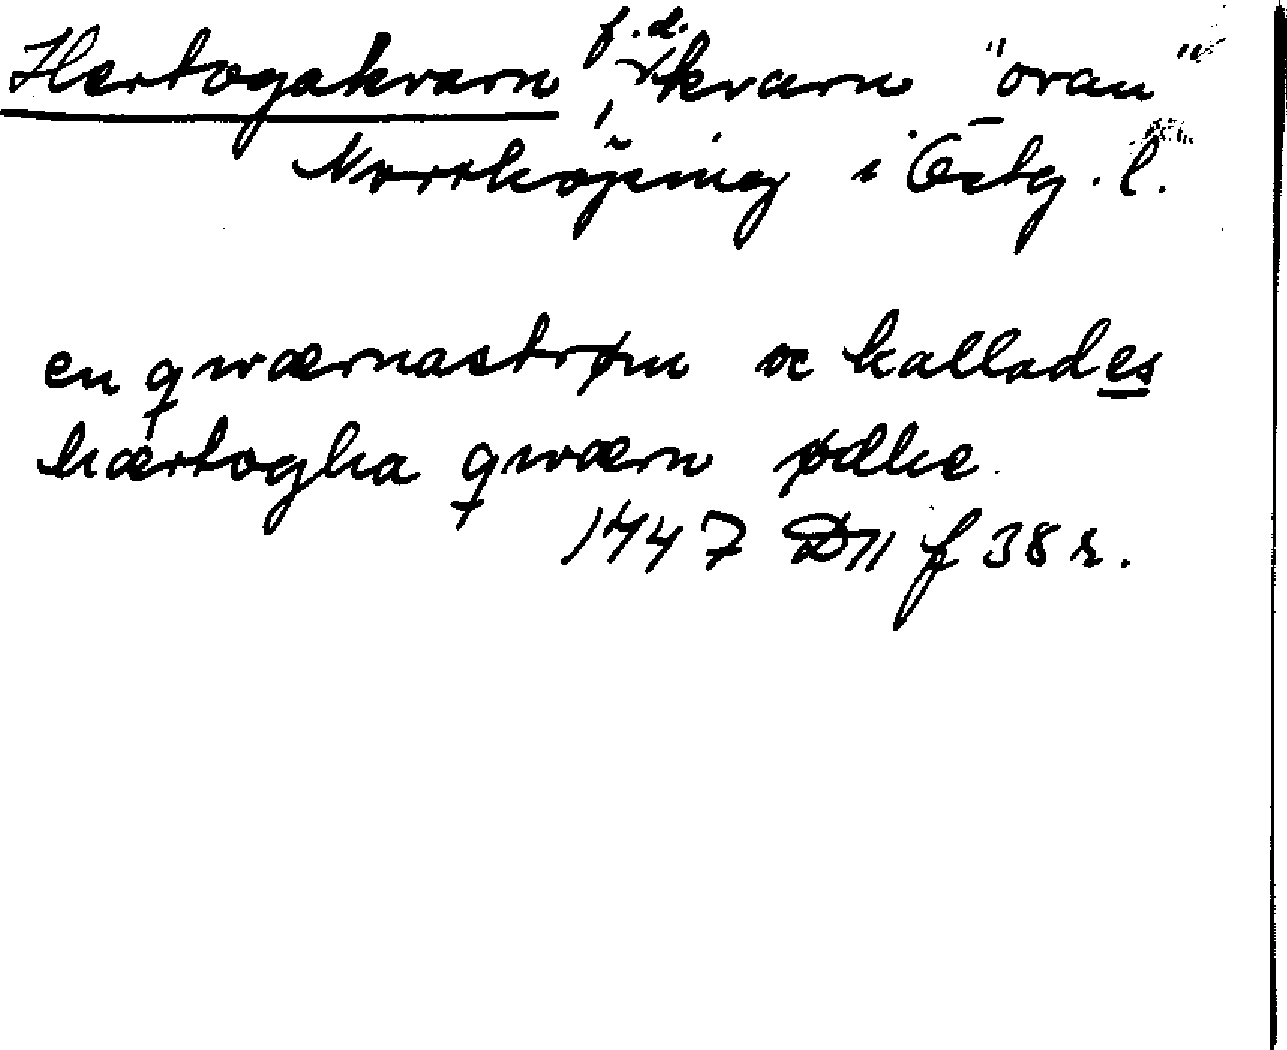 Hertogakvarn, f.d. kvarn "ovan"
Norrköping i Östg. l.
en qwærnastrøm oc kallades
hærtogha qwærn ødhe
1447 D11 f 38 r.